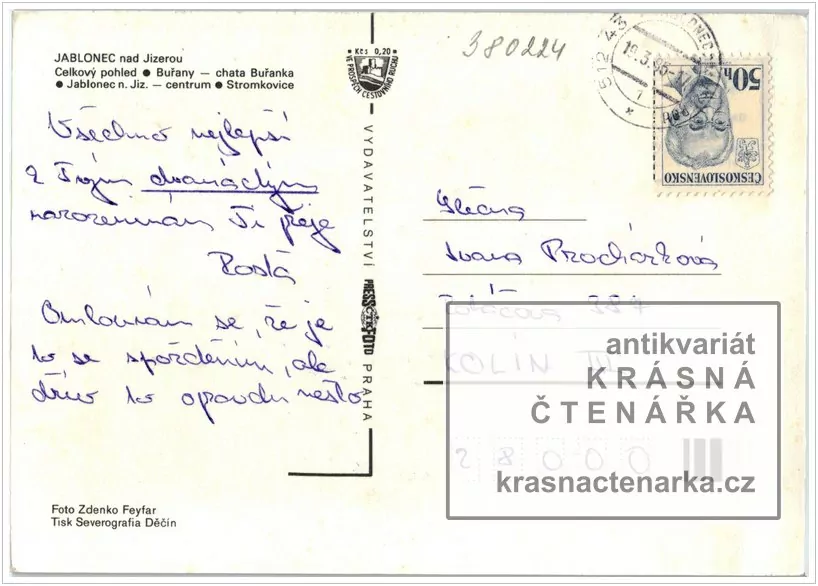 JABLONEC nad Jizerou
Celkový pohled ● Buřany — chata Buřanka
● Jablonec n. Jiz. — centrum ● Stromkovice
Kčs 0,20
VE PROSPĚCH CESTOVNÍHO RUCHU
380224
512 43
19.3.86
1
50h
ČESKOSLOVENSKO
Všechno nejlepší
k Tvým dvanáctým
narozeninám Ti přeje
Omlouvám se, že je
to se zpožděním, ale
dřív to opravdu nešlo
VYDAVATELSTVÍ PRESSFOTO PRAHA
Slečna
Ivana Procházková
387
KOLÍN III
28000
antikvariát
KRÁSNÁ
ČTENÁŘKA
krasnactenarka.cz
Foto Zdenko Feyfar
Tisk Severografia Děčín